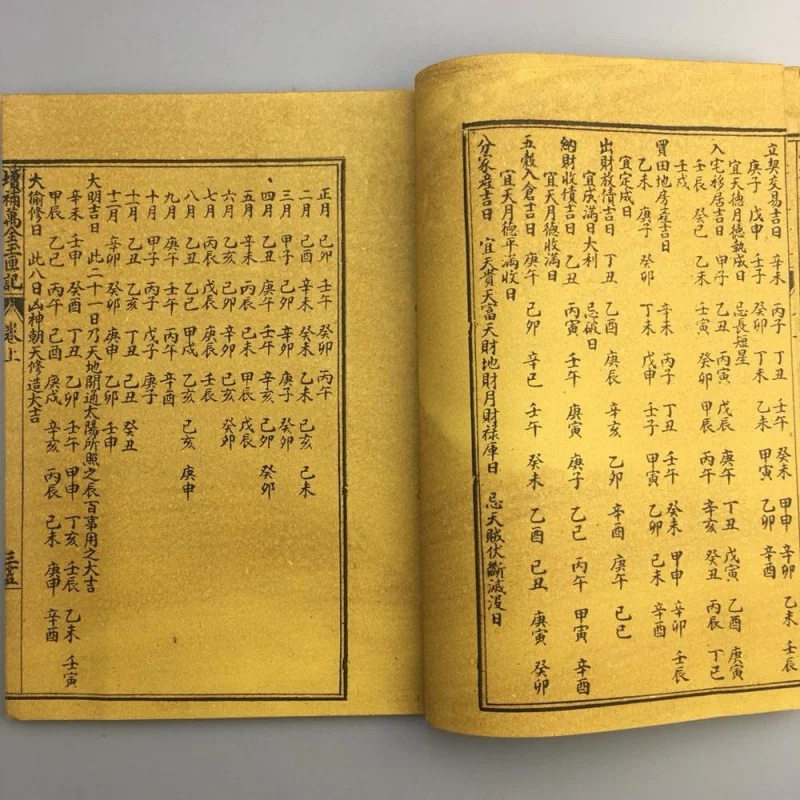 立契交易吉日 辛未 丙子 丁丑 壬午 癸未 甲申 辛卯 乙未 壬辰
庚子 戊申 壬子 癸卯 丁未 乙未 甲寅 乙卯 辛酉
宜天德月德執成日 忌長短星
入宅移居吉日 甲子 乙丑 丙寅 戊辰 庚午 丁丑 戊寅 乙酉 庚寅
壬辰 癸巳 乙未 壬寅 癸卯 甲辰 丙午 辛亥 癸丑 丙辰 丁巳
壬戌
買田地房產吉日 辛未 丙子 丁丑 壬午 癸未 甲申 辛卯 壬辰
乙未 庚子 癸卯 丁未 戊申 壬子 甲寅 乙卯 己未 辛酉
宜定成日
出財放債吉日 丁丑 乙酉 庚辰 辛亥 乙卯 辛酉 庚午 己巳
宜成滿日大利 忌破日
納財收債吉日 乙丑 丙寅 壬午 庚寅 庚子 乙巳 丙午 甲寅 辛酉
宜天月德收滿日
五穀入倉吉日 庚午 己卯 辛巳 壬午 癸未 乙酉 己丑 庚寅 癸卯
宜天月德平滿收日
分家產吉日 宜天貴天富天財地財月財祿庫日 忌天賊伏斷滅沒日
正月 己卯 壬午 癸卯 丙午
二月 己酉 辛未 癸未 乙未 己亥 己未
三月 甲子 己卯 辛卯 庚子 癸卯
四月 乙丑 庚午 壬午 辛亥 己卯 癸卯
五月 辛未 丙辰 己未 甲辰 戊辰
六月 乙亥 己卯 辛卯 己亥 癸卯
七月 丙辰 戊辰 庚辰 壬辰
八月 乙丑 乙巳 甲戌 乙亥 己亥 庚申
九月 庚午 壬午 丙午 辛酉
十月 甲子 丙子 戊子 庚子
十一月 乙丑 乙亥 丁丑 己丑 癸丑
十二月 辛卯 癸卯 庚申 乙卯 壬申
大明吉日 此二十一日乃天地開通太陽所照之辰百事用之大吉
辛未 壬申 癸酉 丁丑 乙卯 壬午 甲申 丁亥 壬辰 乙未 壬寅
甲辰 乙巳 丙午 己酉 庚戌 辛亥 丙辰 己未 庚申 辛酉
大偷修日 此八日凶神朝天修造大吉
增補萬全玉匣記 卷上 三十五